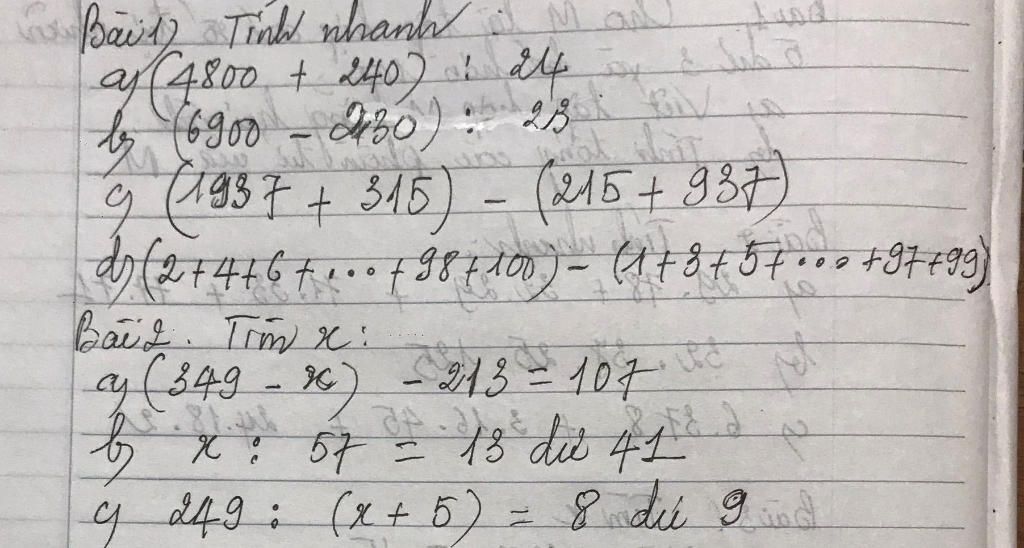 Bài 1) Tính nhanh :
a) (4800 + 240) : 24
b) (6900 - 230) : 23
c) (1937 + 315) - (215 + 937)
d) (2+4+6+...+98+100) - (1+3+5+...+97+99)
Bài 2. Tìm x :
a) (349 - x) - 213 = 107
b) x : 57 = 13 dư 41
c) 249 : (x + 5) = 8 dư 9